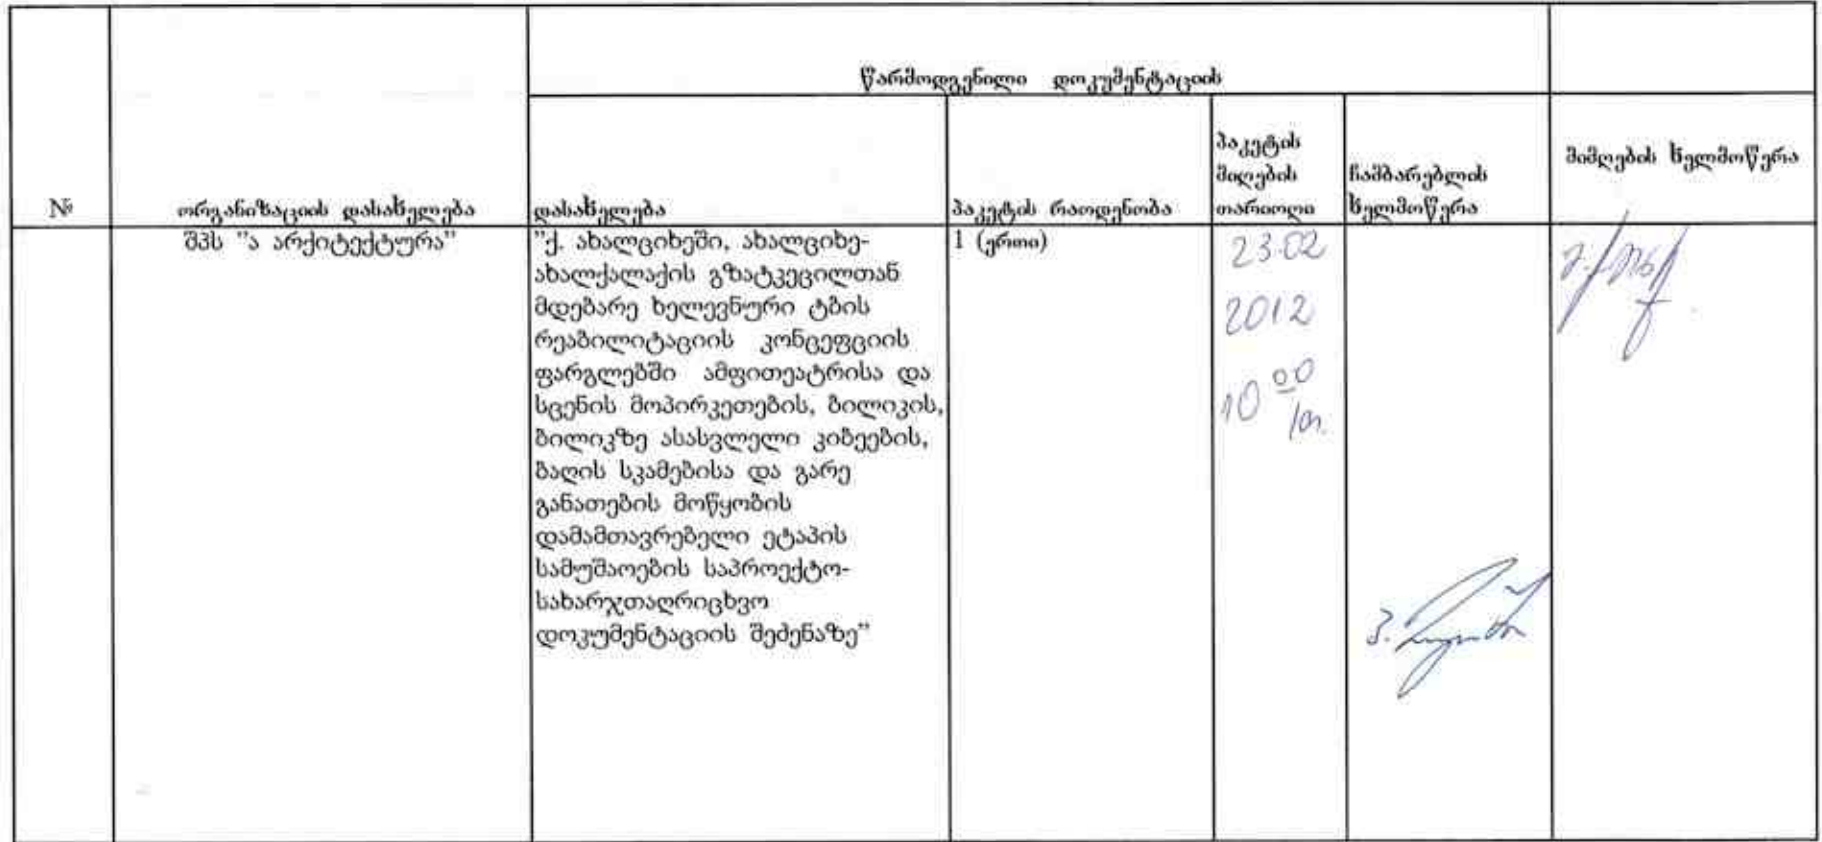 წარმოდგენილი დოკუმენტაციის
№
ორგანიზაციის დასახელება
დასახელება
პაკეტის რაოდენობა
პაკეტის
მიღების
თარიოღი
ჩამბარებლის
ხელმოწერა
მიმღების ხელმოწერა
შპს "ა არქიტექტურა"
"ქ. ახალციხეში, ახალციხე-
ახალქალაქის გზატკეცილთან
მდებარე ხელევნური ტბის
რეაბილიტაციის კონცეფციის
ფარგლებში ამფითეატრისა და
სცენის მოპირკეთების, ბილიკის,
ბილიკზე ასასვლელი კიბეების,
ბაღის სკამებისა და გარე
განათების მოწყობის
დამამთავრებელი ეტაპის
სამუშაოების საპროექტო-
სახარჯთაღრიცხვო
დოკუმენტაციის შეძენაზე"
1 (ერთი)
23.02
2012
10 00